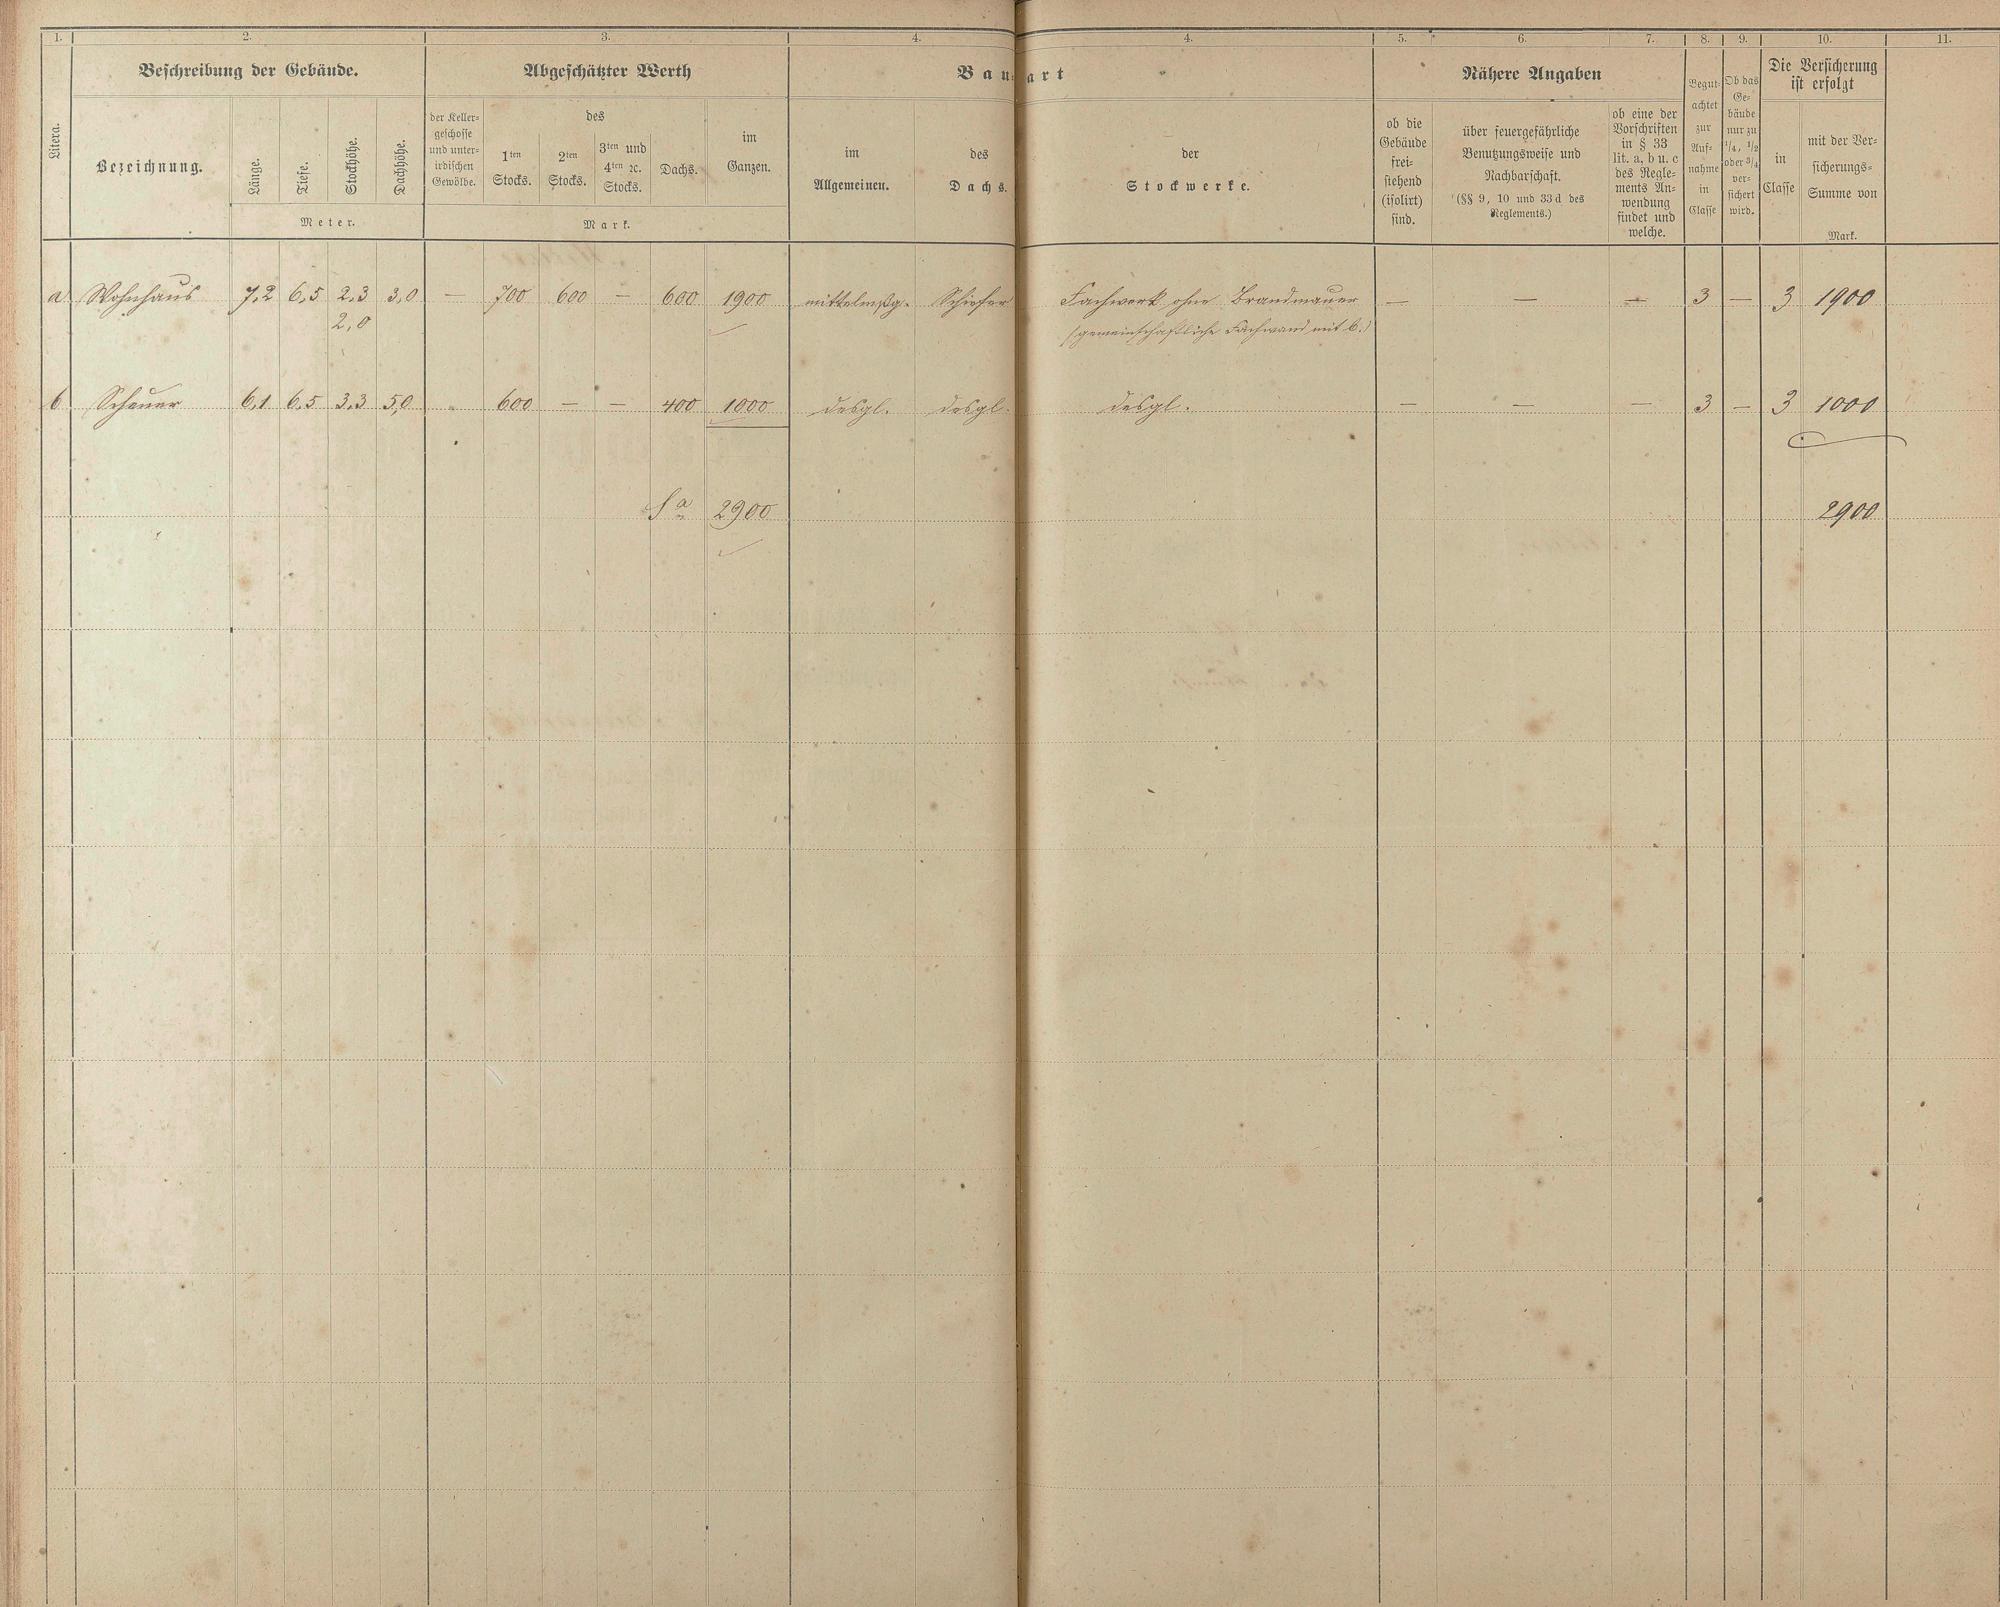 1. 2. 3. 4. 4. 5. 6. 7. 8. 9. 10. 11.
Litera.
Beschreibung der Gebäude.
Bezeichnung.
Länge.
Tiefe.
Stockhöhe.
Dachhöhe.
Meter.
Abgeschätzter Werth
der Keller-
geschosse
und unter-
irdischen
Gewölbe.
des
1ten
Stocks.
2ten
Stocks.
3ten und
4ten ꝛc.
Stocks.
Dachs.
im
Ganzen.
Mark.
Bauart
im
Allgemeinen.
des
Dachs.
der
Stockwerke.
Nähere Angaben
ob die
Gebäude
frei-
stehend
(isolirt)
sind.
über feuergefährliche
Benutzungsweise und
Nachbarschaft.
(§§ 9, 10 und 33 d des
Reglements.)
ob eine der
Vorschriften
in § 33
lit. a, b u. c
des Regle-
ments An-
wendung
findet und
welche.
Begut-
achtet
zur
Auf-
nahme
in
Classe
Ob das
Ge-
bäude
nur zu
1/4, 1/2
oder 3/4
ver-
sichert
wird.
Die Versicherung
ist erfolgt
in
Classe
mit der Ver-
sicherungs-
Summe von
Mark.
a Wohnhaus 7,2 6,5 2,3 3,0 — 700 600 — 600 1900 mittelmßg. Schiefer Fachwerk ohne Brandmauer — — — 3 — 3 1900
2,0 (gemeinschaftliche Fachwand mit b.)
b Scheuer 6,1 6,5 3,3 5,0 600 — — 400 1000 desgl. desgl. desgl. — — — 3 — 3 1000
Sa 2900 2900